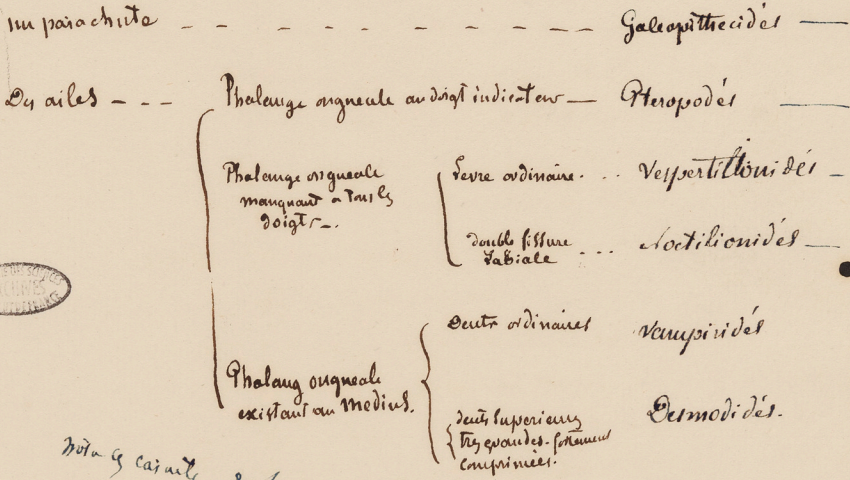 un parachute - - - - - - - - - Galeopithecidés —
Des ailes - - - Phalange ongneale au doigt indicateur — Pteropodés —
Phalange ongneale
manquant a tous les
doigts -.
Levre ordinaire. . . Vespertilionidés -
double fissure
Labiale . . . Noctilionidés —
Phalang ongneale
existant au medius.
Dents ordinaires Vampiridés
dents superieures
tres grandes. fortement
comprimées.
Desmodidés.
Nota